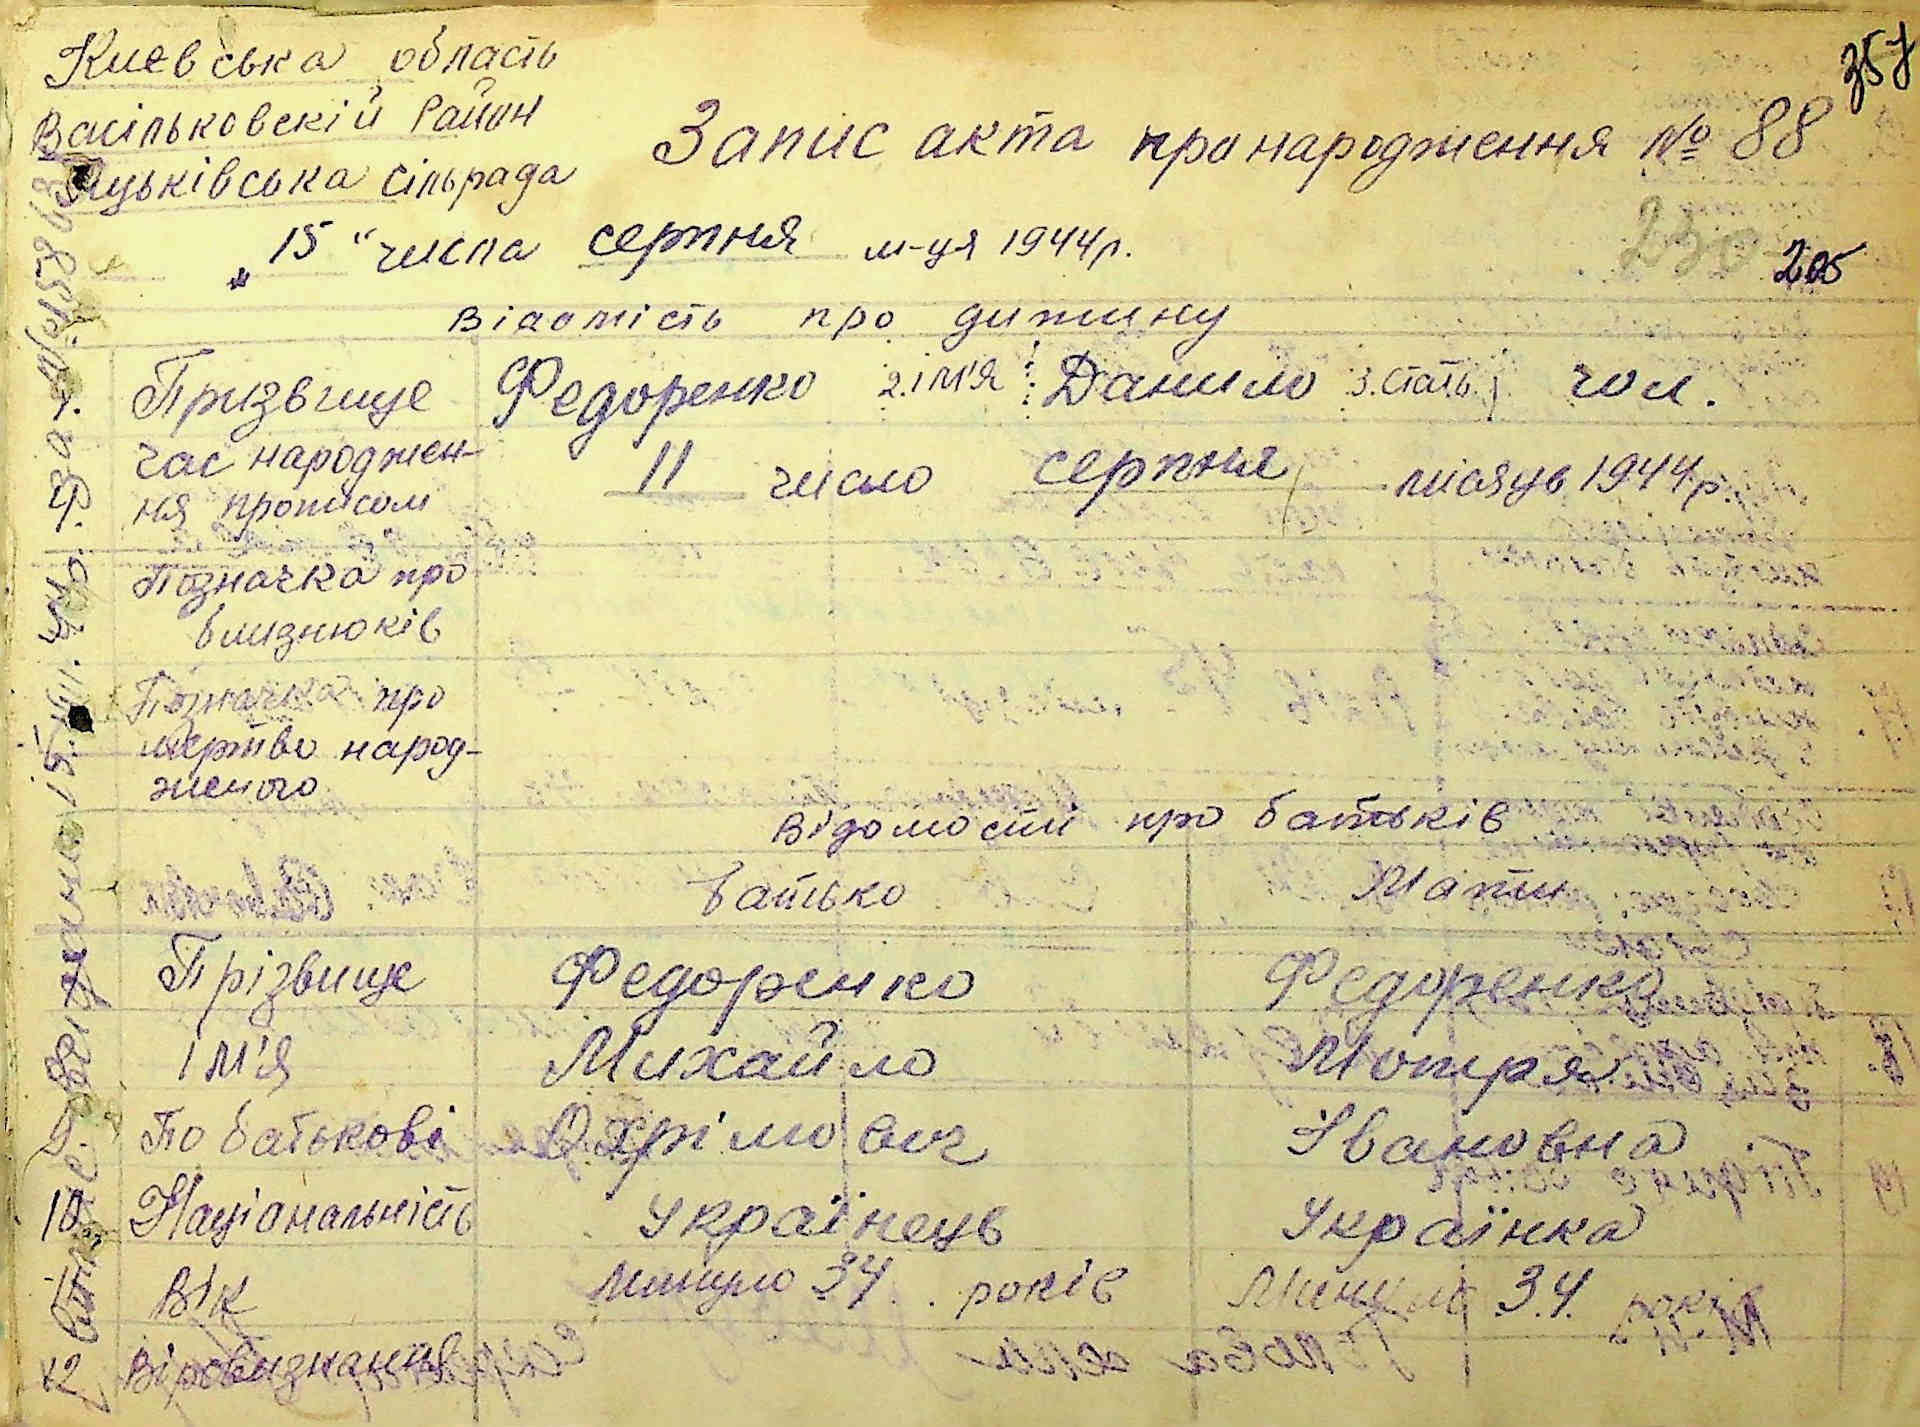 357
Києвська область
Васільковскій Район
Яцьківська сільрада
Запис акта про народження № 88
„15" числа серпня м-ця 1944р.
230
205
Відомість про дитину
Призвище Федоренко 2. ім'я: Данило 3. Стать чол.
4. час народжен-
ня прописом 11 число серпня місяць 1944р.
Позначка про
близнюків
Позначка про
мертво народ-
женого
Відомості про батьків
Батько Мати
Прізвище Федоренко Федоренко
Ім'я Михайло Мотря
По батькові Охрімович Івановна
10 Національність Українець Українка
Вік Минуло 34 років Минуло 34. років
12 Віровизнання